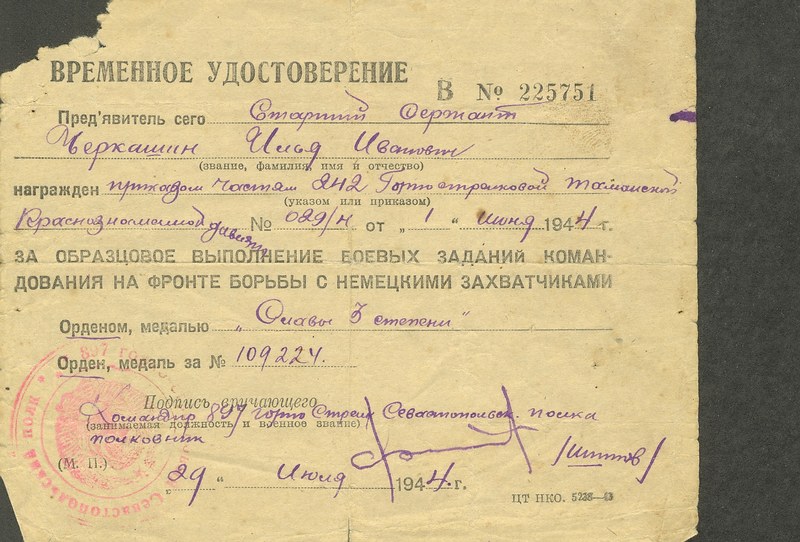 ВРЕМЕННОЕ УДОСТОВЕРЕНИЕ
В № 225751
Пред'явитель сего Старший Сержант
Черкашин Илья Иванович
(звание, фамилия, имя и отчество)
награжден приказом частям 242 Горно стрелковой Таманской
(указом или приказом)
Краснознаменной дивизии № 029/н от „ 1 “ июня 1944 г.
ЗА ОБРАЗЦОВОЕ ВЫПОЛНЕНИЕ БОЕВЫХ ЗАДАНИЙ КОМАН-
ДОВАНИЯ НА ФРОНТЕ БОРЬБЫ С НЕМЕЦКИМИ ЗАХВАТЧИКАМИ
Орденом, медалью „Славы 3 степени“
Орден, медаль за № 109224.
Подпись вручающего
Командир 897 горно Стрелк Севастопольск. полка
(занимаемая должность и военное звание)
полковник
/Шитов/
(М. П.)
„29“ Июля 1944 г.
ЦТ НКО. 5238—43
897 ГОРНО
СЕВАСТОПОЛЬСКИЙ ПОЛК